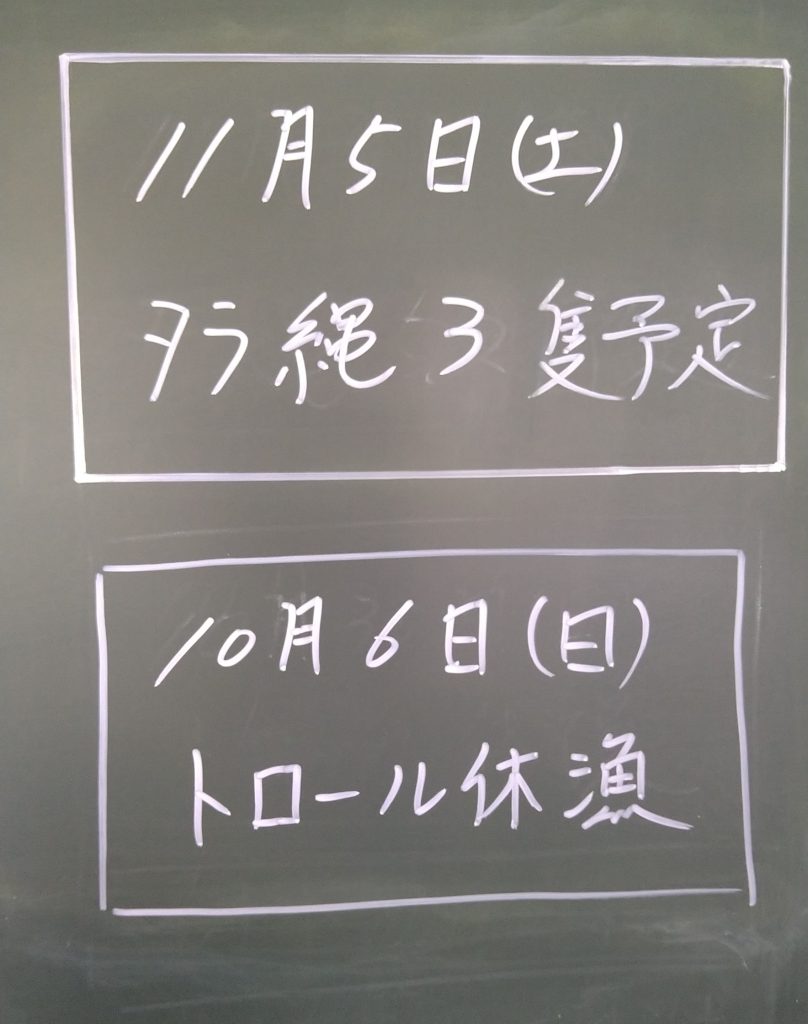 11月5日(土)
タラ縄3隻予定
10月6日(日)
トロール休漁